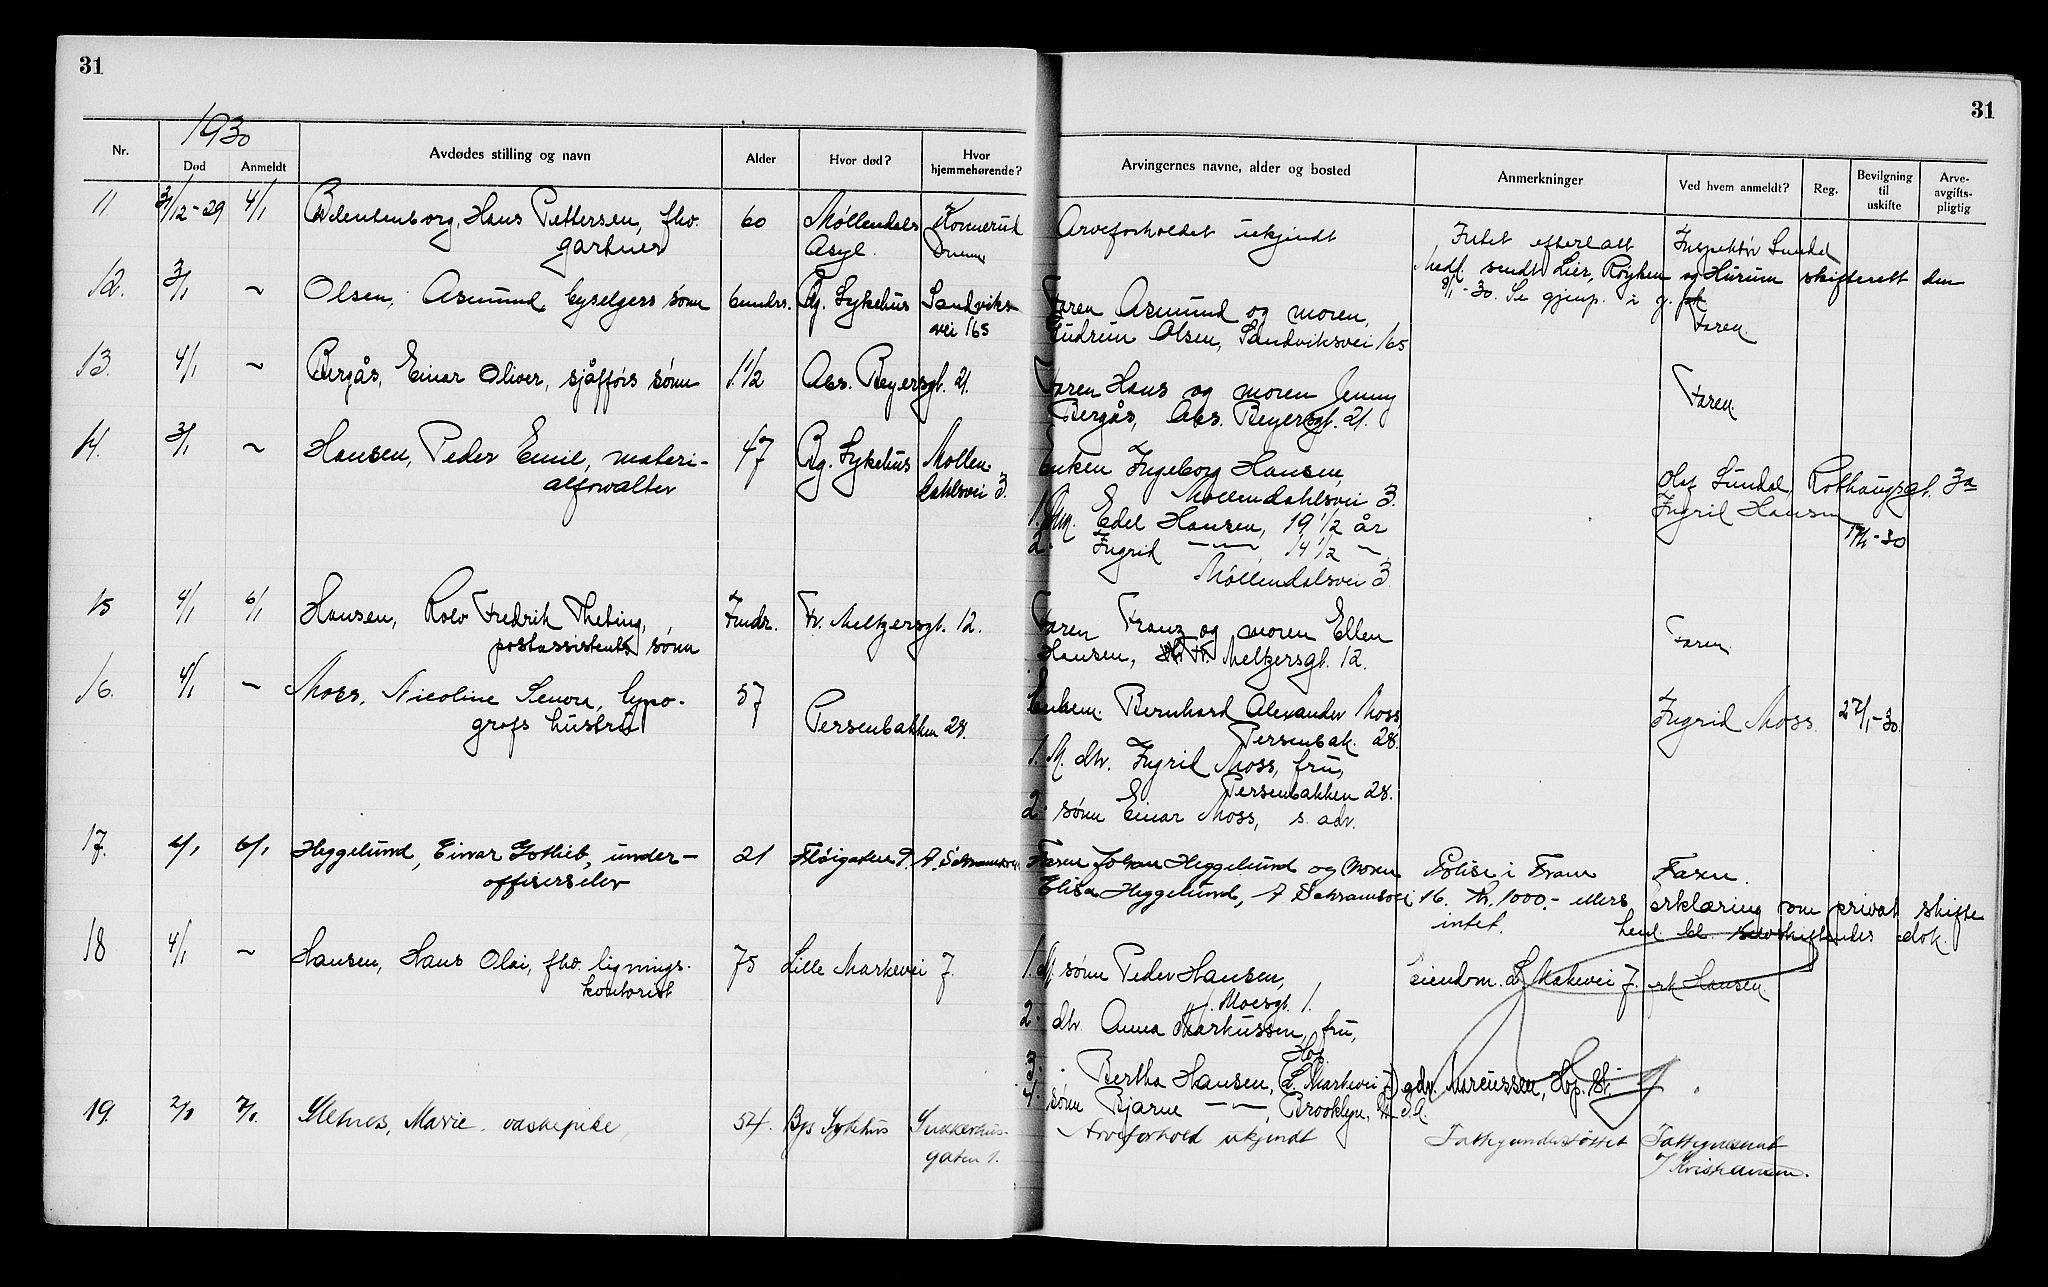 31
31
1930
Nr.
Død
Anmeldt
Avdødes stilling og navn
Alder
Hvor død?
Hvor hjemmehørende?
Arvingernes navne, alder og bosted
Anmerkninger
Ved hvem anmeldt?
Reg.
Bevilgning til uskifte
Arveavgiftspligtig
11 31/12-29 4/1 Hans Pettersen, fhv. 60 Møllendals Konnerud Arveforholdet ukjendt Intet efterlatt Inspektør Lundel
gartner Asyl.
Medl. sendt Lier, Røyken og Hurum skifterett den
8/1-30. Se gjenp. i
12. 3/1 ~ Olsen, Asmund, 6 mndrs. Bg. Sykehus Sandviks- Faren Asmund og moren, Faren
vei 165 Gudrun Olsen, Sandviksvei 165
13. 4/1 ~ Bergås, Einar Oliver, sjåførs sønn 1 1/2 Abs. Beyersgt. 21. Faren Hans og moren Jenny Faren.
Bergås, Abs. Beyersgt. 21.
14. 3/1 ~ Hansen, Peder Emil, materi- 47 Bg. Sykehus Møllen- Enken Ingeborg Hansen, Olaf Lundal, Rothaugsgt. 3a
alforvalter dahlsvei 3. Møllendahlsvei 3. Ingrid Hansen
1. Edel Hansen, 19 1/2 år
2. Ingrid —"— 14 1/2 —
Møllendalsvei 3.
15 4/1 6/1 Hansen, Rolv Fredrik Theting, 7 mdr. Fr. Meltzersgt. 12. Faren Franz og moren Ellen Faren
postassistents sønn Hansen, Fr. Meltzersgt. 12.
16. 4/1 ~ Moss, Nicoline typo- 57 Persenbakken 28. Enkem. Bernhard Alexander Moss Ingrid Moss. 27/1-30.
grafs hustru Persenbak. 28.
1. M. dtr. Ingrid Moss, fru,
Persenbakken 28.
2. sønn Einar Moss, s. adr.
17. 4/1 6/1 Heggelund, Einar Gotlieb, under- 21 Fløigaten 9. Faren Johan Heggelund og moren Polise i Fram Faren.
offiserselev Elisa Heggelund, A Schramsvei 16. Kr. 1000.- ellers erklæring om privat skifte
intet.
dok.
18 4/1 ~ Hansen, Hans Olai, fhv. lignings- 75 Lille Markevei 7. 1. M. sønn Peder Hansen, eiendom. L Markevei 7. Hansen.
kontorist Moesgt. 1.
2. dtr. Anna Markussen, fru,
Hop.
3. Bertha Hansen, (L. Markevei 7) adr. Marcussen, Hop. st.
4. sønn Bjarne —"— Brooklyn,
19. 7/1. Marie. vaskepike, 54. Bgs Sykehus Arveforhold ukjendt Fattigunderstøttet
gaten 1. Kristiansen.